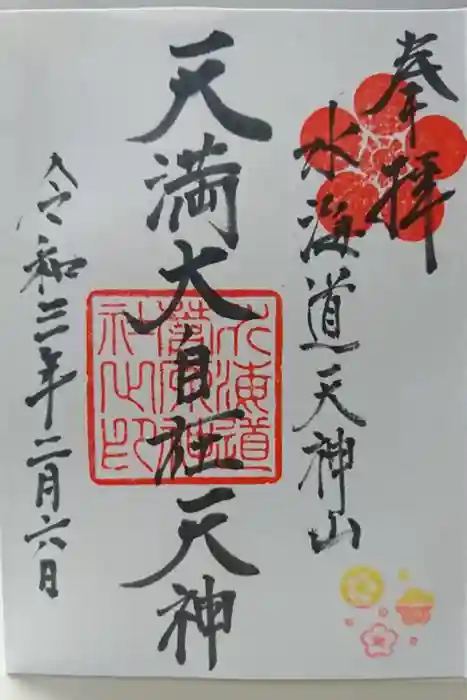 奉拝
水海道天神山
天満大自在天神
令和三年二月六日